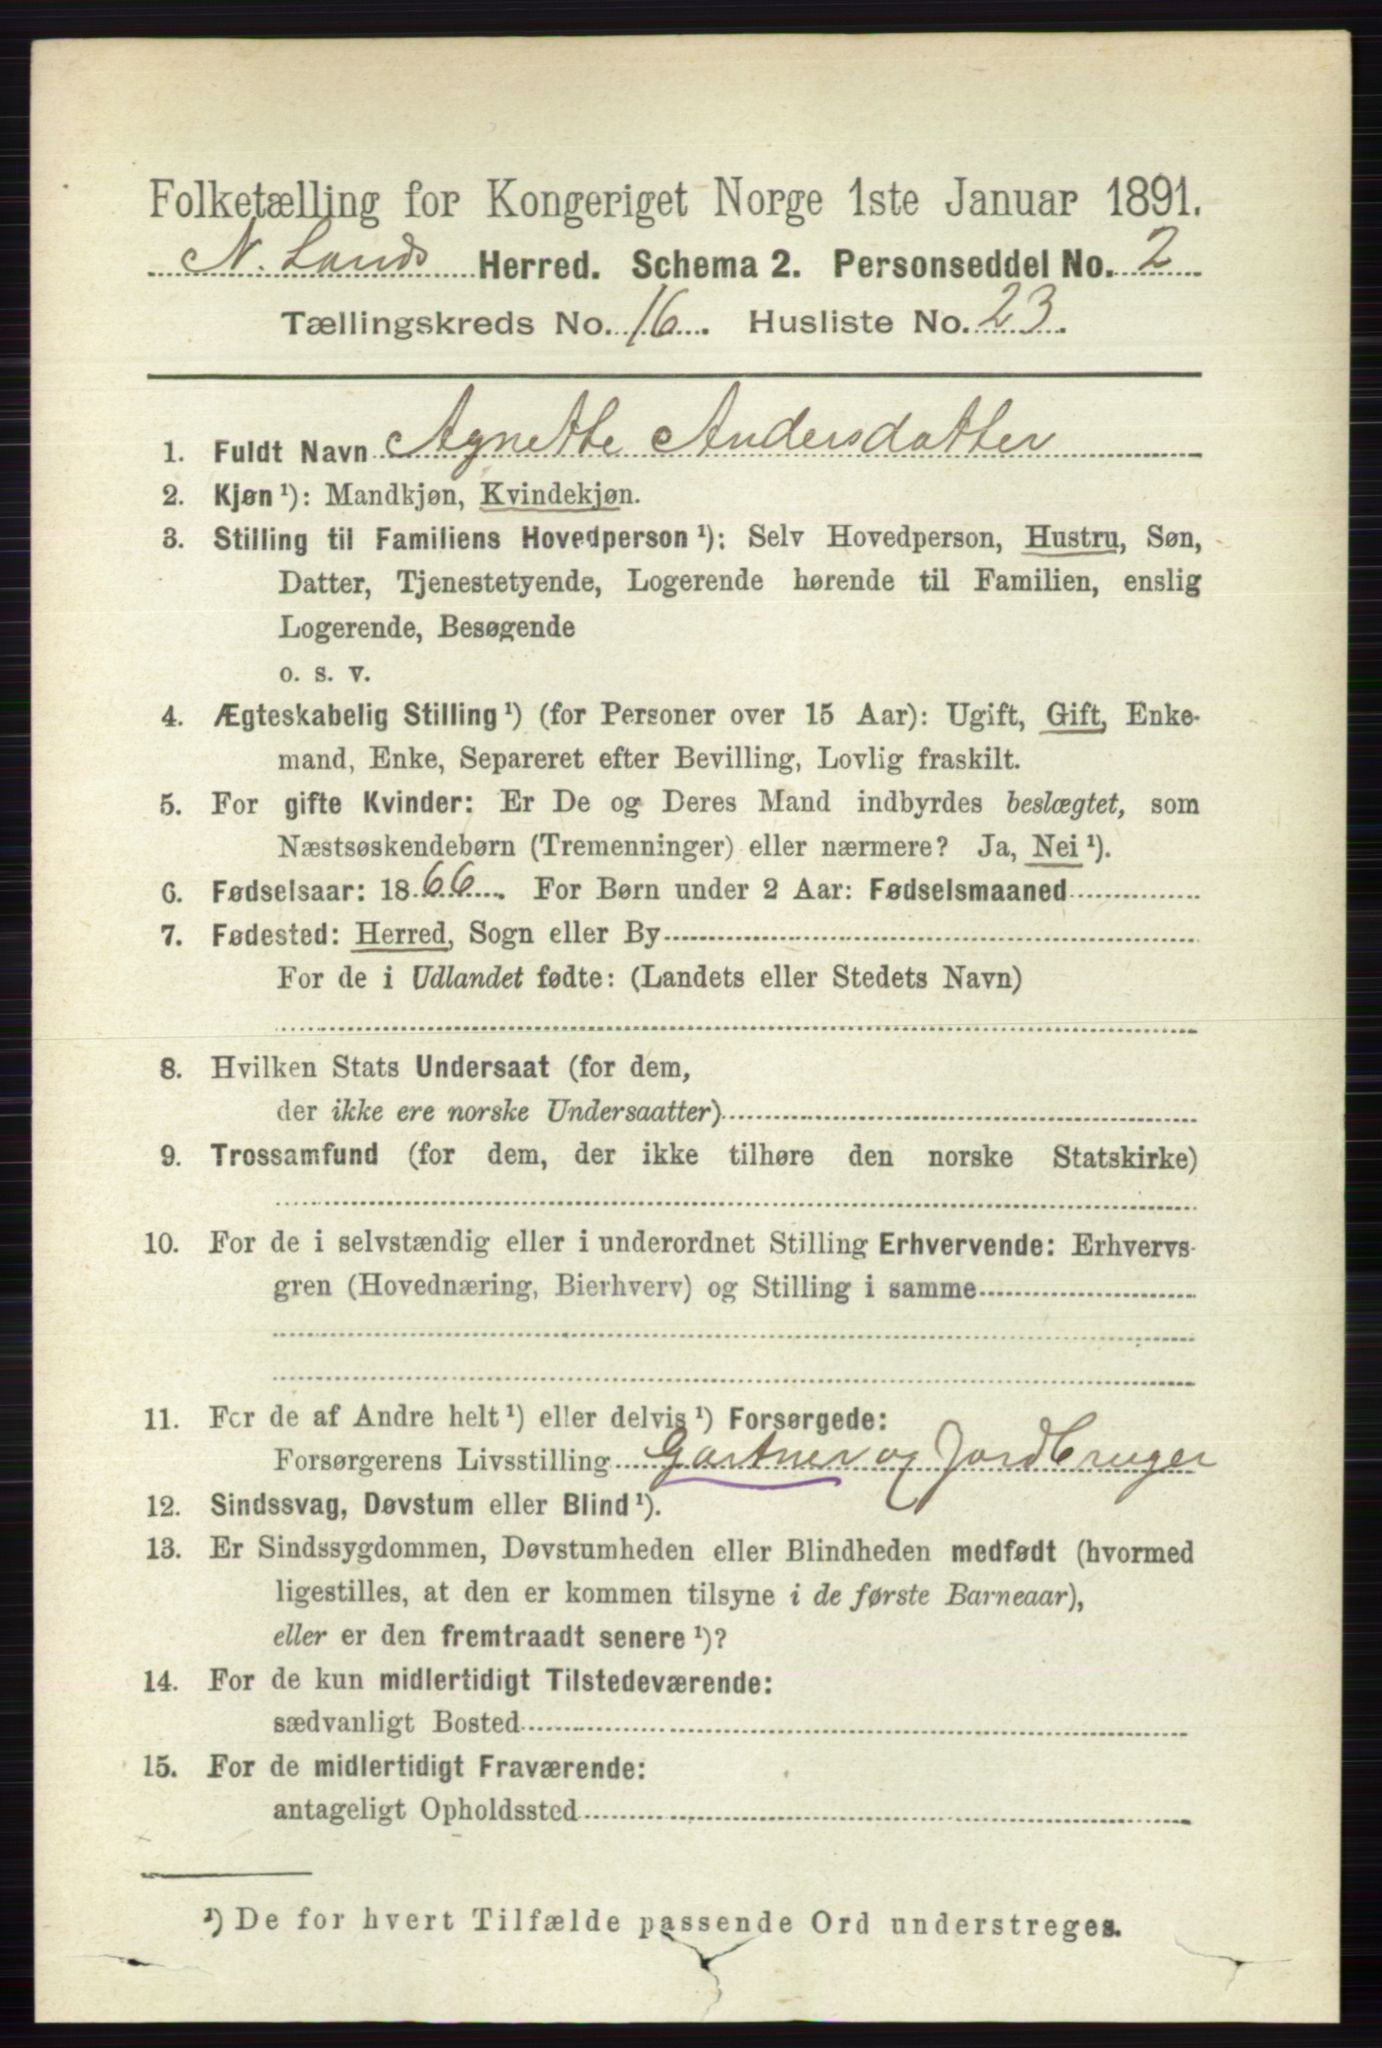 Folketælling for Kongeriget Norge 1ste Januar 1891.
N. Lands Herred. Schema 2. Personseddel No. 2
Tællingskreds No. 16. Husliste No. 23.
1. Fuldt Navn Agnette Andersdatter
2. Kjøn ¹): Mandkjøn, Kvindekjøn.
3. Stilling til Familiens Hovedperson ¹): Selv Hovedperson, Hustru, Søn,
Datter, Tjenestetyende, Logerende hørende til Familien, enslig
Logerende, Besøgende
o. s. v.
4. Ægteskabelig Stilling ¹) (for Personer over 15 Aar): Ugift, Gift, Enke-
mand, Enke, Separeret efter Bevilling, Lovlig fraskilt.
5. For gifte Kvinder: Er De og Deres Mand indbyrdes beslægtet, som
Næstsøskendebørn (Tremenninger) eller nærmere? Ja, Nei ¹).
6. Fødselsaar: 1866. For Børn under 2 Aar: Fødselsmaaned
7. Fødested: Herred, Sogn eller By
For de i Udlandet fødte: (Landets eller Stedets Navn)
8. Hvilken Stats Undersaat (for dem,
der ikke ere norske Undersaatter)
9. Trossamfund (for dem, der ikke tilhøre den norske Statskirke)
10. For de i selvstændig eller i underordnet Stilling Erhvervende: Erhvervs-
gren (Hovednæring, Bierhverv) og Stilling i samme
11. For de af Andre helt ¹) eller delvis ¹) Forsørgede:
Forsørgerens Livsstilling Gartner og Jordbruger
12. Sindssvag, Døvstum eller Blind ¹).
13. Er Sindssygdommen, Døvstumheden eller Blindheden medfødt (hvormed
ligestilles, at den er kommen tilsyne i de første Barneaar),
eller er den fremtraadt senere ¹)?
14. For de kun midlertidigt Tilstedeværende:
sædvanligt Bosted
15. For de midlertidigt Fraværende:
antageligt Opholdssted
¹) De for hvert Tilfælde passende Ord understreges.